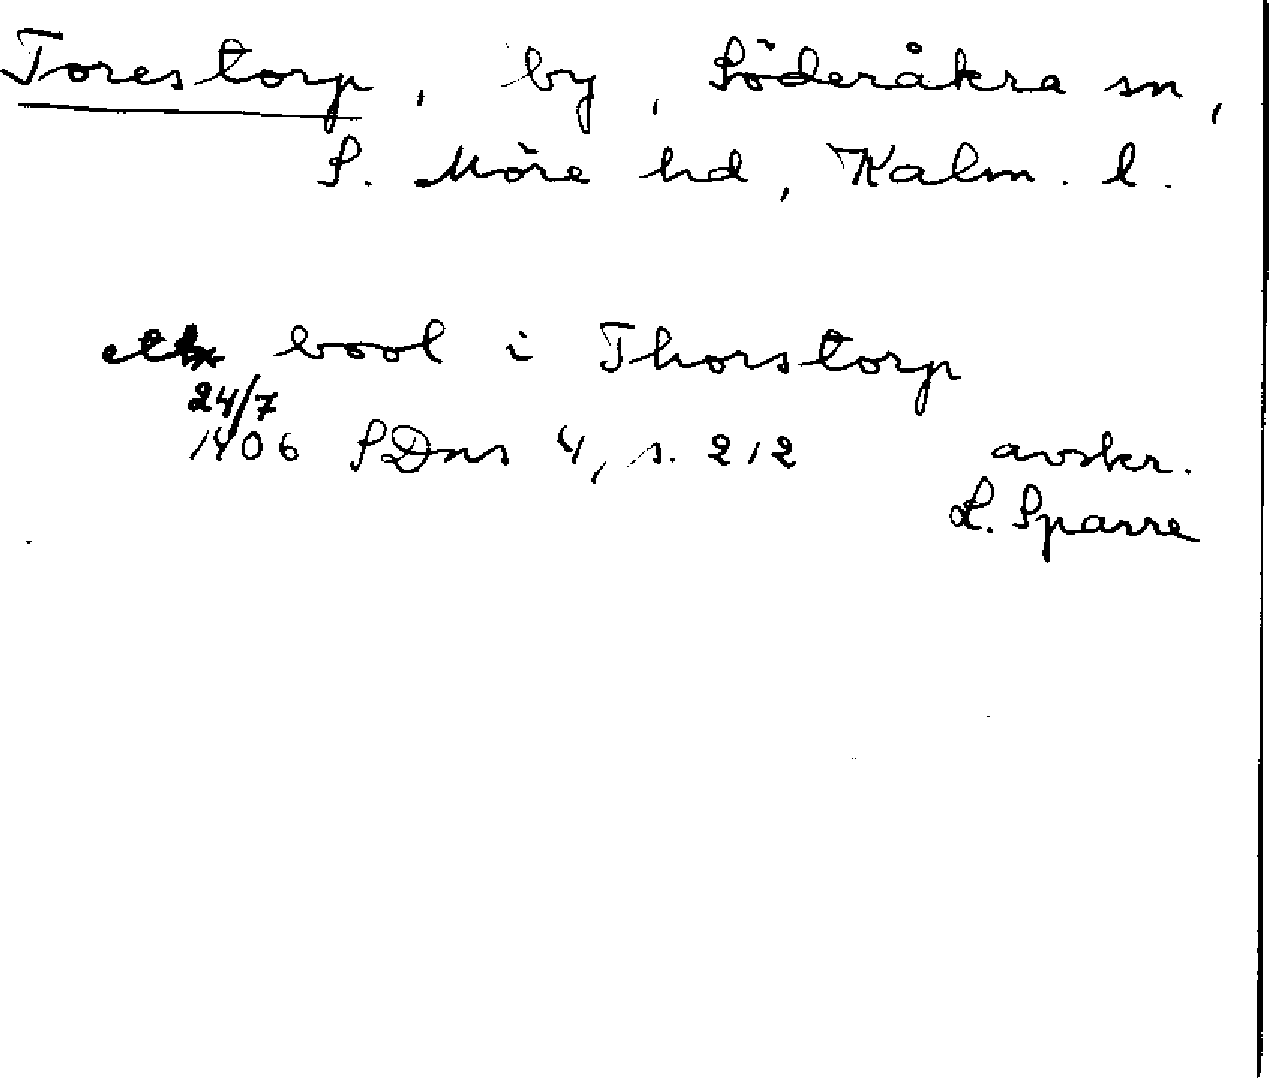 Torestorp, by, Söderåkra sn,
S. Möre hd, Kalm. l.
ett bool i Thorstorp
24/7
1406 SDns 4, s. 212 avskr.
L. Sparre